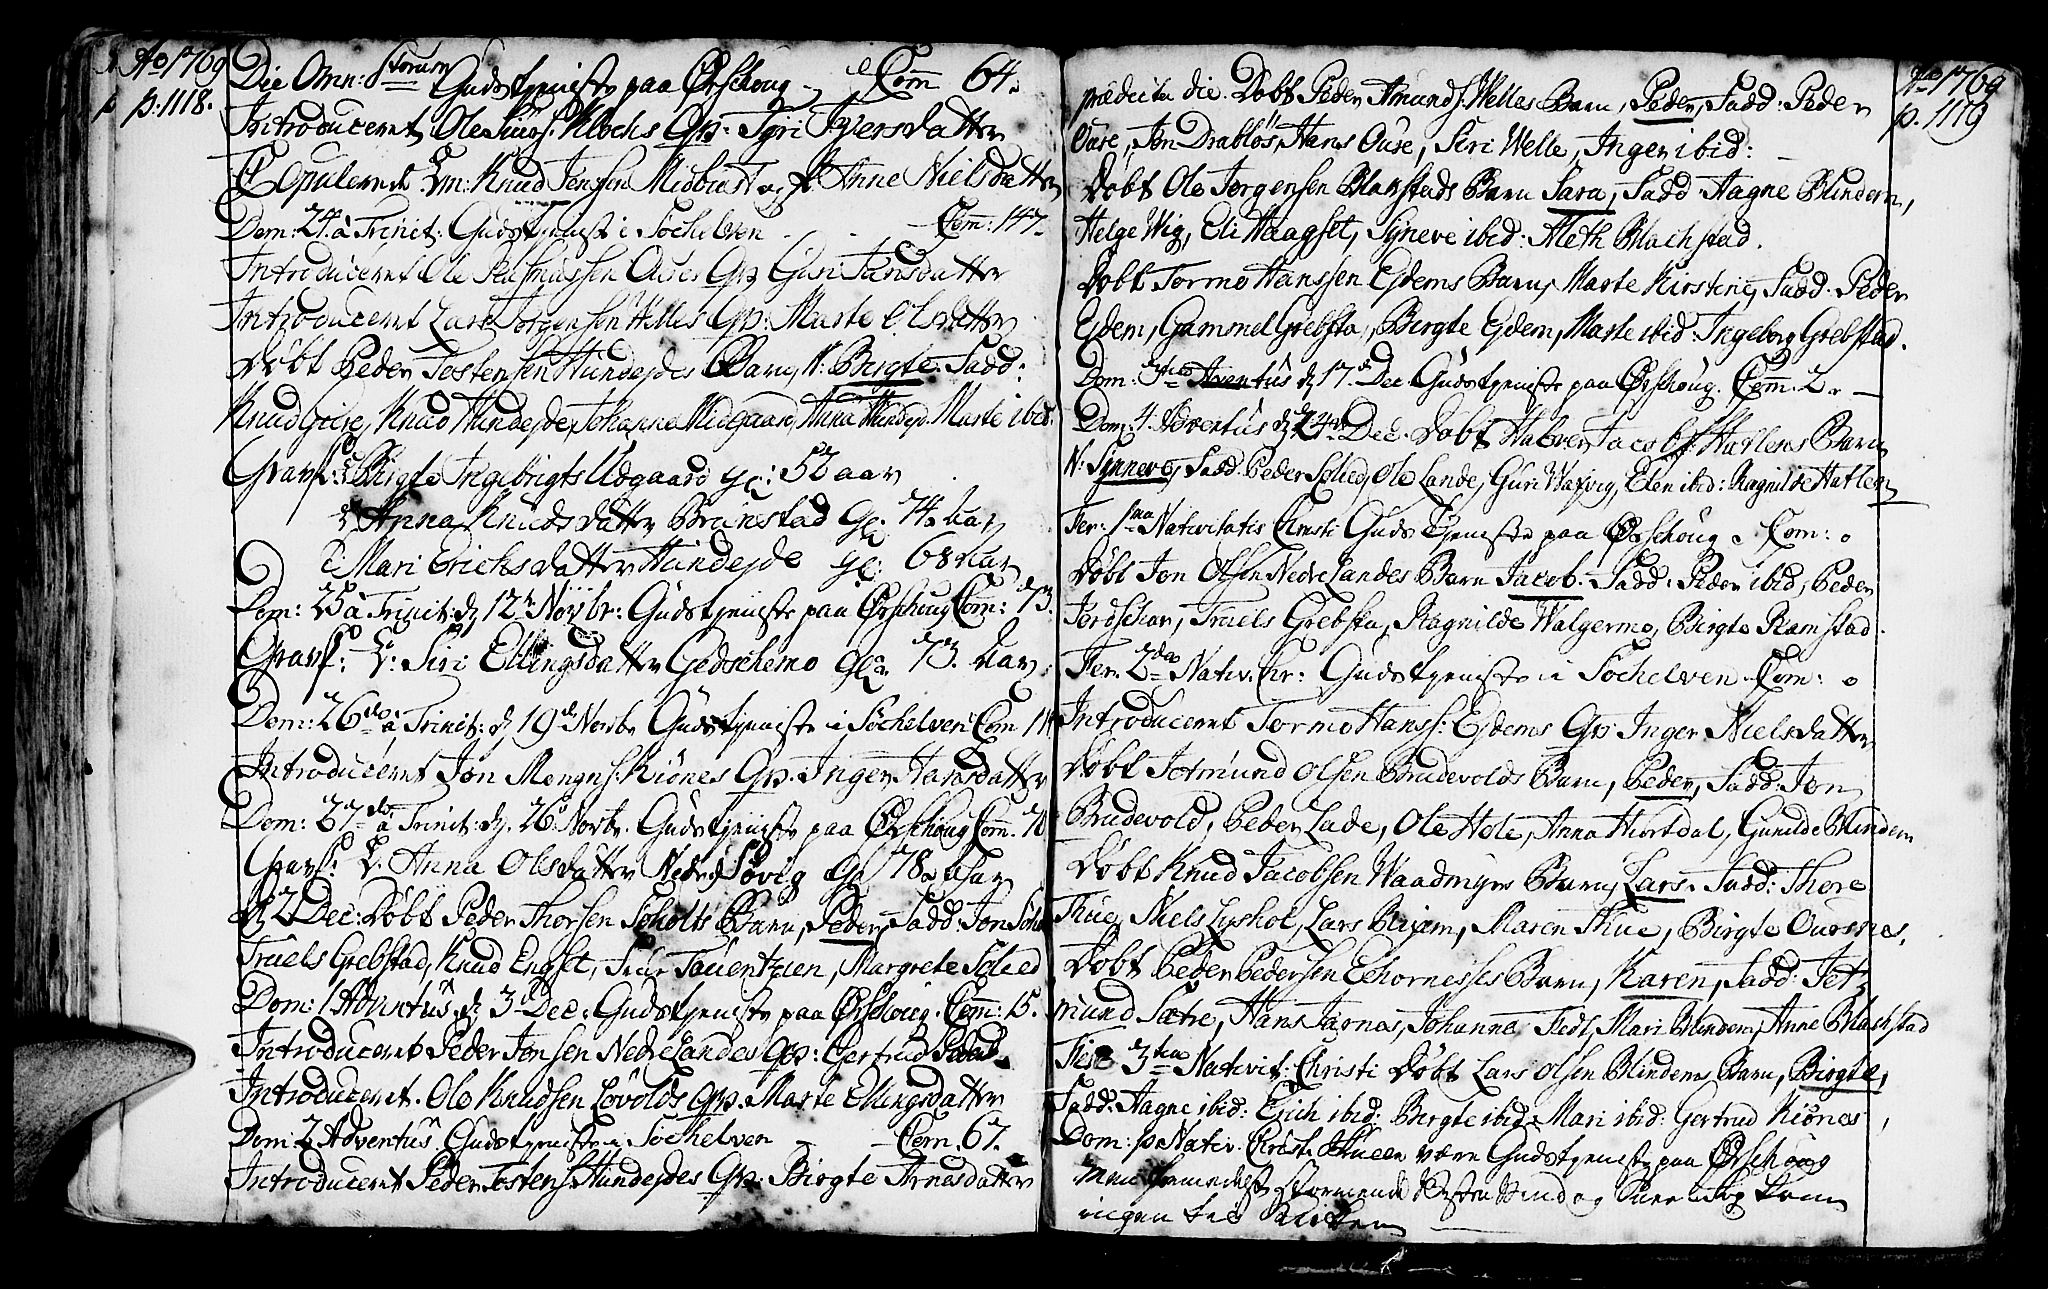 Ao 1769
p. 1118.
Die Omn: Storum Gudstjeniste paa Ørschoug Com̄ 64.
Introduceret Ole Siurs: Klochs Qv: Syri Iversdatter
Copuleret Em: Knud Jensen Midbust og P. Anne Nielsdatter
Dom: 24. à Trinit: Gudstjeniste i Søchelven - - Com̄: 147.
Introduceret Ole Rasmussen Ouses Qv: Guri Jansdatter
Introduceret Lars Jørgensen Welles Qv: Marte Olsdatter
Døbt Peder Tostensen Hundejdes Barn, N: Birgte. Fadd:
Knud Giære, Knud Hundejde, Johanna Midgaard, Anna Hundejd. Marte ibid:
Gravf: Birgte Ingebrigts Udgaard gl: 52 aar
Anna Knudsdatter Brunstad gl: 74. Aar
Mari Erichsdatter Hundejde gl: 68 Aar
Dom: 25 à Trinit: d 12te Novbr: Gudstjeniste paa Ørschoug Com: 73.
Gravf: E: Siri Ellingsdatter Gedschemo gl: 73. Aar
Dom: 26de à Trinit: d 19de Novbr Gudstjeniste i Søchelven Com 114
Introduceret Jon Mengns: Kiønes Qv: Inger Hansdatter
Dom: 27de à Trinit: d. 26 Novbr. Gudstjeniste paa Ørschoug Com. 70
Gravf: E. Anna Olsdatter Nedre Søvig gl 78. Aar
d 2 Dec: Døbt Peder Thorsen Søholts Barn, Peder, Fadd: Jon Søholt
Truels Grebstad, Knud Engset, Siur Tauentzien, Margrete Solied
Dom: 1 Adventus d 3 Dec: Gudstjeniste paa Ørschoug. Com̄: 15.
Introduceret Peder Jonsen Nedre Landes Qv: Gertrud Pedersd.
Introduceret Ole Knudsen Løvolds Qv. Marte Ellingsdatter
Dom: 2 Adventus Gudstjeniste i Søchelven - - Com. 67.
Introduceret Peder Tostens: Hundejdes Qv: Birgte Arnesdatter
Ao 1769
p. 1119
prædicta die. Døbt Peder Amunds: Welles Barn, Peder, Fadd: Peder
Ouse, Jon Drabløs, Hans Ouse, Siri Welle, Inger ibid:
Døbt Ole Jørgensen Blachstads Barn Sara, Fadd Aagne Blindem,
Helge Wig, Eli Haagset, Syneve ibid: Aleth Blachstad.
Døbt Tormo Hanssen Ejdems Barn, Marte Kirstine, Fadd. Peder
Ejdem, Gammel Grebsta, Birgte Ejdem, Marte ibid: Ingeborg Grebstad.
Dom: 3tio Aventus d 17. Dec Gudstjeniste paa Ørschoug. Com̄: 2.
Dom: 4. Adventus d 24de Dec. Døbt Halver Jacobs: Hatlems Barn
N: Synneve, Fadd. Peder Solied, Ole Lande, Guri Waxvig, Elen ibid: Ragnilde Hatlem
Fer: 1ma Nativitatis Christi Guds Tjeniste paa Ørschoug Com: 0
Døbt Jon Olsen Nedre Landes Barn Jacob. Fadd: Peder ibid, Peder
Jordschar, Truels Grebsta, Ragnilde Walgermo, Birgte Ramstad.
Fer. 2da Nativ. Chr: Gudstjeniste i Søchelven Com: 0
Introduceret Tormo Hanss: Ejdems Qv: Inger Nielsdatter
Døbt Jetmund Olsen Brudevolds Barn, Peder, Fadd: Jon
Brudevold, Peder Lade, Ole Hole, Anna Hiortdal, Gunilde Blindem
Døbt Knud Jacobsen Waadmyrs Barn, Lars. Fadd: Thore
Thue, Niels Lyshol, Lars Blijem, Maren Thue, Birgte Oursnes.
Døbt Peder Pedersen Echornesses Barn, Karen, Fadd: Jet-
mund Sætre, Hans Jarnes, Johanne Fedt, Mari Blindem, Anne Blachstad
Fer 3tia Nativit: Christi Døbt Lars Olsen Blindems Barn, Birgte,
Fadd. Aagne ibid: Erich ibid: Birgte ibid: Mari ibid: Gertrud Kiønes
Dom: p. Nativ. Christi skulle være Gudstjeniste paa Ørschoug
men formedelst stormende Vesten Vind og kom
ingen til Kirken